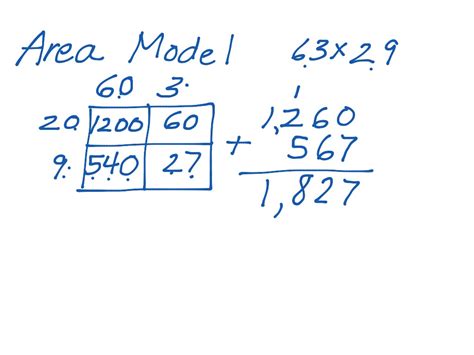 Area Model 63×29
60 3
20 1200 60
9 540 27
1
1,260
+ 567
1,827